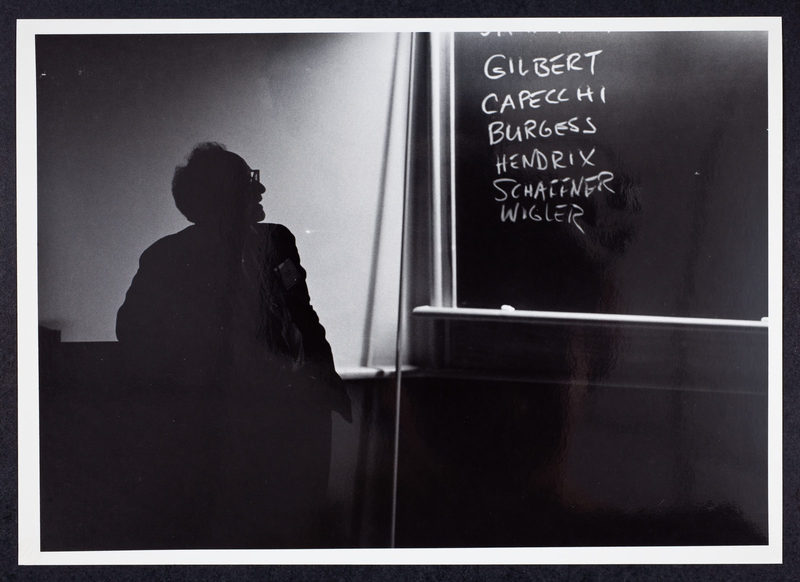 GILBERT
CAPECCHI
BURGESS
HENDRIX
SCHAFFNER
WIGLER